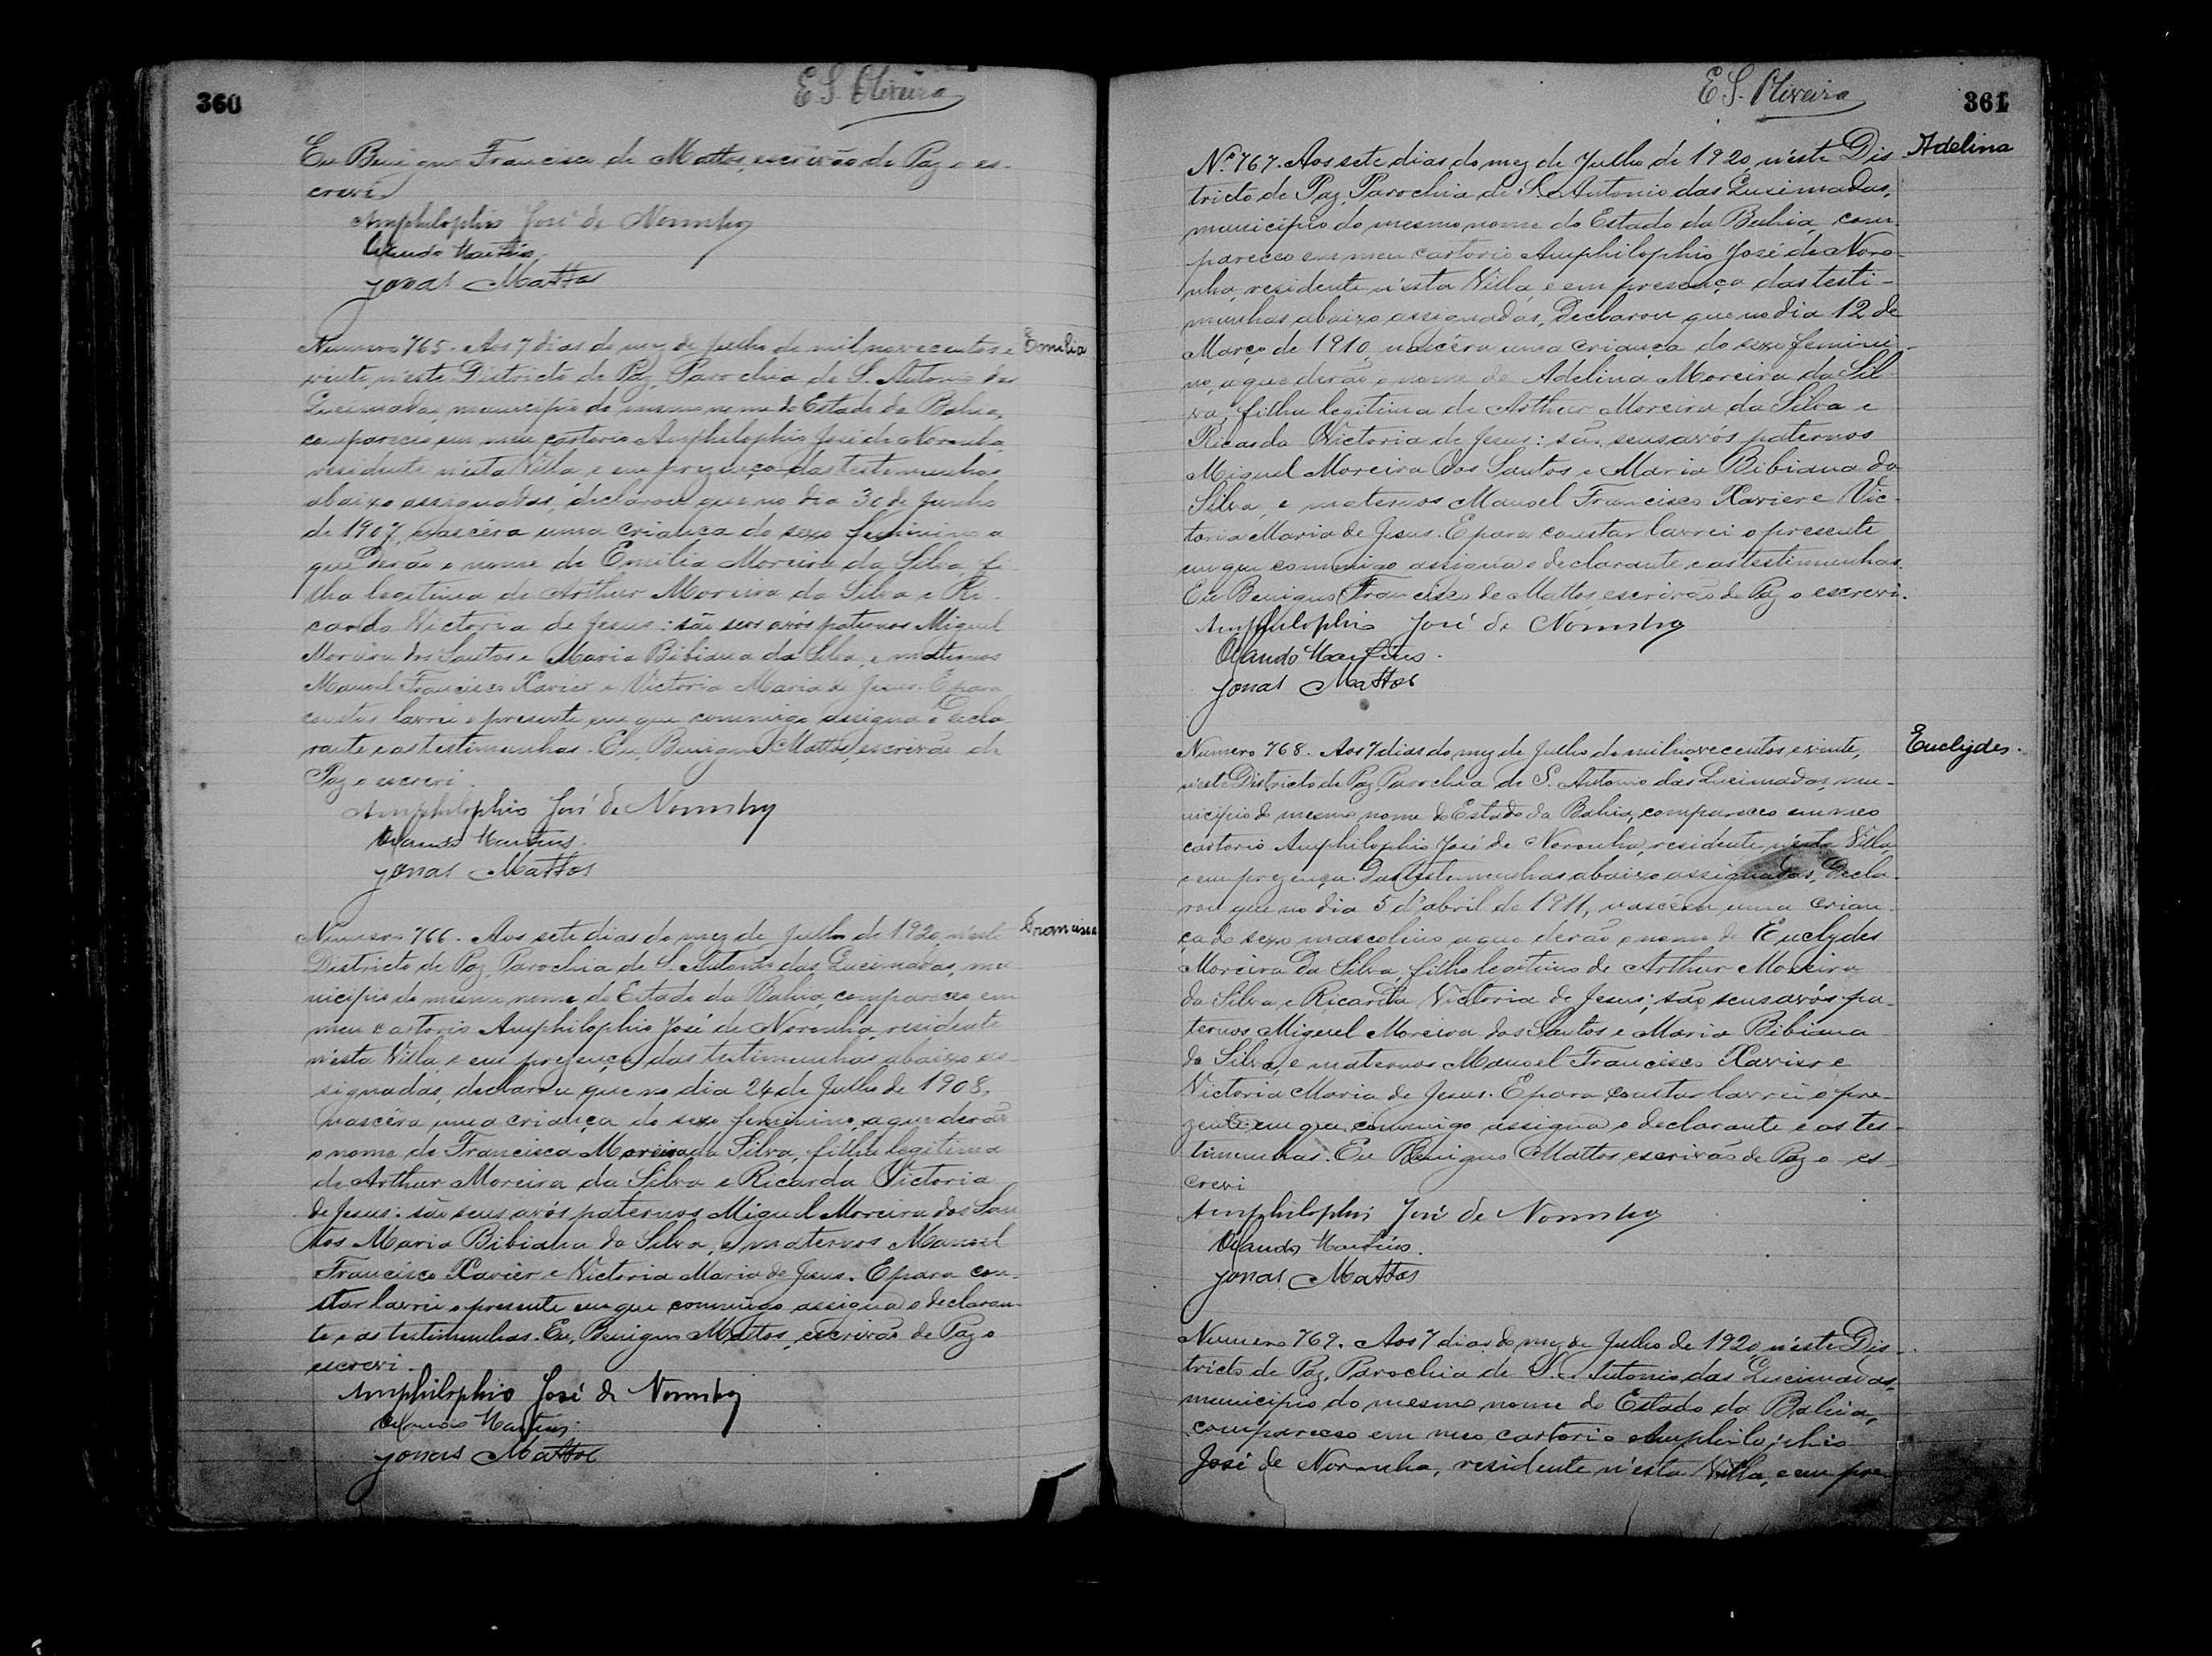 360
E S. Oliveira
Eu Benigno Francisco de Mattos, escrivão de Paz o es-
crevi
Amphilophio José de Noronha
Martins.
Jonas Mattos
Emilia
Numero 765. Aos 7 dias do mez de Julho de mil novecentos e
vinte, n'este Districto de Paz, Parochia de S. Antonio das
Queimadas, municipio do mesmo nome do Estado da Bahia,
compareceo em meu cartorio Amphilophio José de Noronha,
residente n'esta Villa, e em prezença das testemunhas
abaixo assignadas, declarou que no dia 30 de Junho
de 1907, nascêra uma criança do sexo feminino a
que derão o nome de Emilia Moreira da Silva, fi-
lha legitima de Arthur Moreira da Silva e Ri-
carda Victoria de Jesus: são seus avós paternos Miguel
Moreira dos Santos e Maria Bibiana da Silva, e maternos
Manoel Francisco Xavier e Victoria Maria de Jesus. E para
constar lavrei o presente em que commigo assigna o decla-
rante e as testimunhas. Eu, Benigno Mattos, escrivão de
Paz o escrevi.
Amphilophio José de Noronha
Martins.
Jonas Mattos
Francisca
Numero 766. Aos sete dias do mez de Julho de 1920, n'este
Districto de Paz, Parochia de S. Antonio das Queimadas, mu-
nicipio do mesmo nome do Estado da Bahia, compareceo em
meu cartorio Amphilophio José de Noronha, residente
n'esta Villa, e em prezença das testimunhas abaixo as-
signadas, declarou que no dia 24 de Julho de 1908,
nascêra uma criança do sexo feminino, a que derão
o nome de Francisca Moreira da Silva, filha legitima
de Arthur Moreira da Silva e Ricarda Victoria
de Jesus: são seus avós paternos Miguel Moreira dos San-
tos Maria Bibiana da Silva, e maternos Manoel
Francisco Xavier e Victoria Maria de Jesus. E para con-
star lavrei o presente em que commigo assigna o declaran-
te e as testimunhas. Eu, Benigno Mattos, escrivão de Paz o
escrevi.
Amphilophio José de Noronha
Martins.
Jonas Mattos
E S. Oliveira
361
Adelina
Nº 767. Aos sete dias do mez de Julho de 1920, n'este Dis-
tricto de Paz, Parochia de S. Antonio das Queimadas,
municipio do mesmo nome do Estado da Bahia, com-
pareceo em meu cartorio Amphilophio José de Noro-
nha, residente n'esta Villa, e em presença das testi-
munhas abaixo assignadas, Declarou que no dia 12 de
Março de 1910, nascêra uma criança do sexo femini-
no, a que derão o nome de Adelina Moreira da Sil-
va, filha legitima de Arthur Moreira da Silva e
Ricarda Victoria de Jesus: são seus avós paternos
Miguel Moreira dos Santos e Maria Bibiana da
Silva, e maternos Manoel Francisco Xavier e Vic-
toria Maria de Jesus. E para constar lavrei o presente
em que commigo assigna o declarante e as testimunhas.
Eu Benigno Francisco de Mattos, escrivão de Paz o escrevi.
Amphilophio José de Noronha
Martins.
Jonas Mattos
Euclydes.
Numero 768. Aos 7 dias do mez de Julho de mil novecentos e vinte,
n'este Districto de Paz, Parochia de S. Antonio das Queimadas, mu-
nicipio do mesmo nome do Estado da Bahia, compareceo em meo
cartorio Amphilophio José de Noronha, residente n'esta Villa,
e em prezença das testemunhas abaixo assignadas, Decla-
rou que no dia 5 d'abril de 1911, nascêra uma crian-
ça do sexo mascolino a que derão o nome de Euclydes
Moreira da Silva, filho legitimo de Arthur Moreira
da Silva e Ricarda Victoria de Jesus; são seus avós pa-
ternos Miguel Moreira dos Santos e Maria Bibiana
da Silva, e maternos Manoel Francisco Xavier e
Victoria Maria de Jesus. E para constar lavrei o pre-
zente em que commigo assigna o declarante e as tes-
timunhas. Eu Benigno Mattos escrivão de Paz o es-
crevi
Amphilophio José de Noronha
Martins.
Jonas Mattos
Numero 769. Aos 7 dias do mez de Julho de 1920, n'este Dis-
tricto de Paz, Parochia de S. Antonio das Queimadas,
municipio do mesmo nome do Estado da Bahia,
compareceo em meo cartorio Amphilophio
José de Noronha, residente n'esta Villa, e em pre-